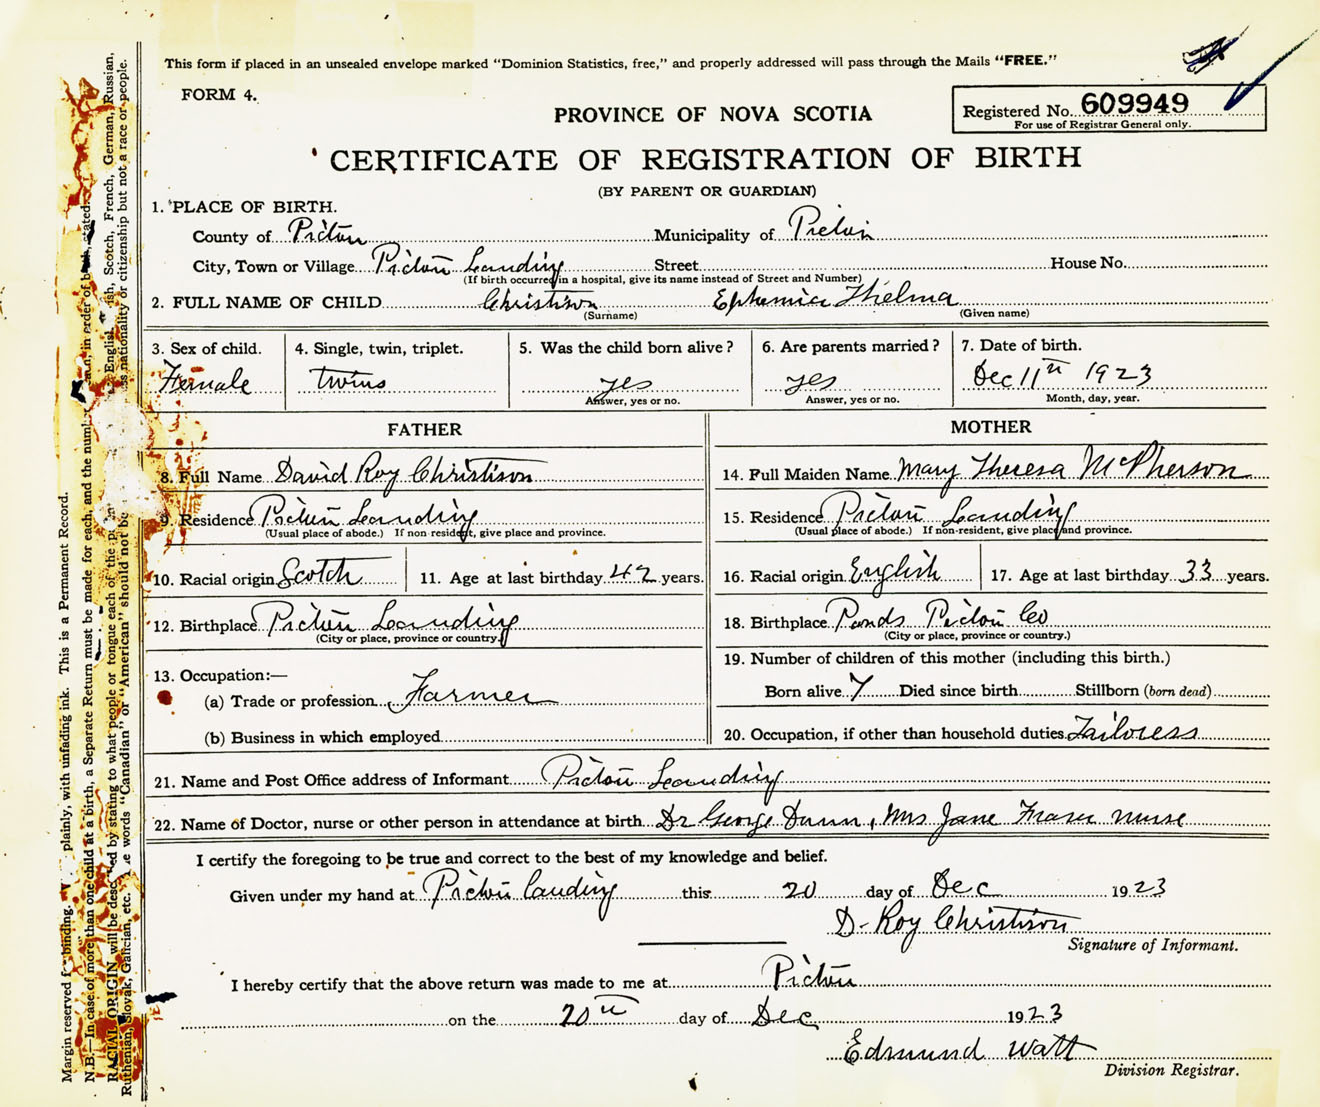 This form if placed in an unsealed envelope marked "Dominion Statistics, free," and properly addressed will pass through the Mails "FREE."
FORM 4.
Registered No. 609949
For use of Registrar General only.
PROVINCE OF NOVA SCOTIA
CERTIFICATE OF REGISTRATION OF BIRTH
(BY PARENT OR GUARDIAN)
1. PLACE OF BIRTH.
County of Pictou Municipality of Pictou
City, Town or Village Pictou Landing Street House No.
(If birth occurred in a hospital, give its name instead of Street and Number)
2. FULL NAME OF CHILD Christison Ephemia Thelma
(Surname) (Given name)
3. Sex of child. 4. Single, twin, triplet. 5. Was the child born alive? 6. Are parents married? 7. Date of birth.
Female twins yes yes Dec 11th 1923
Answer, yes or no. Answer, yes or no. Month, day, year.
FATHER MOTHER
8. Full Name David Roy Christison 14. Full Maiden Name Mary Theresa McPherson
9. Residence Pictou Landing 15. Residence Pictou Landing
(Usual place of abode.) If non-resident, give place and province. (Usual place of abode.) If non-resident, give place and province.
10. Racial origin Scotch 11. Age at last birthday 42 years. 16. Racial origin English 17. Age at last birthday 33 years.
12. Birthplace Pictou Landing 18. Birthplace Ponds Pictou Co
(City or place, province or country.) (City or place, province or country.)
13. Occupation:— 19. Number of children of this mother (including this birth.)
(a) Trade or profession Farmer Born alive 7 Died since birth Stillborn (born dead)
(b) Business in which employed 20. Occupation, if other than household duties Tailoress
21. Name and Post Office address of Informant Pictou Landing
22. Name of Doctor, nurse or other person in attendance at birth Dr George Dunn, Mrs Jane Fraser nurse
I certify the foregoing to be true and correct to the best of my knowledge and belief.
Given under my hand at Pictou Landing this 20 day of Dec 1923
D- Roy Christison
Signature of Informant.
I hereby certify that the above return was made to me at Pictou
on the 20th day of Dec 1923
Edmund Watt
Division Registrar.
Margin reserved for binding. plainly, with unfading ink. This is a Permanent Record.
N.B.—In case of more than one child at a birth, a Separate Return must be made for each, and the in order of birth, stated.
RACIAL ORIGIN will be described by stating to what people or tongue each of the English, Irish, Scotch, French, German, Russian,
Ruthenian, Slovak, Galician, etc. words "Canadian" or "American" should not be nationality or citizenship but not a race or people.